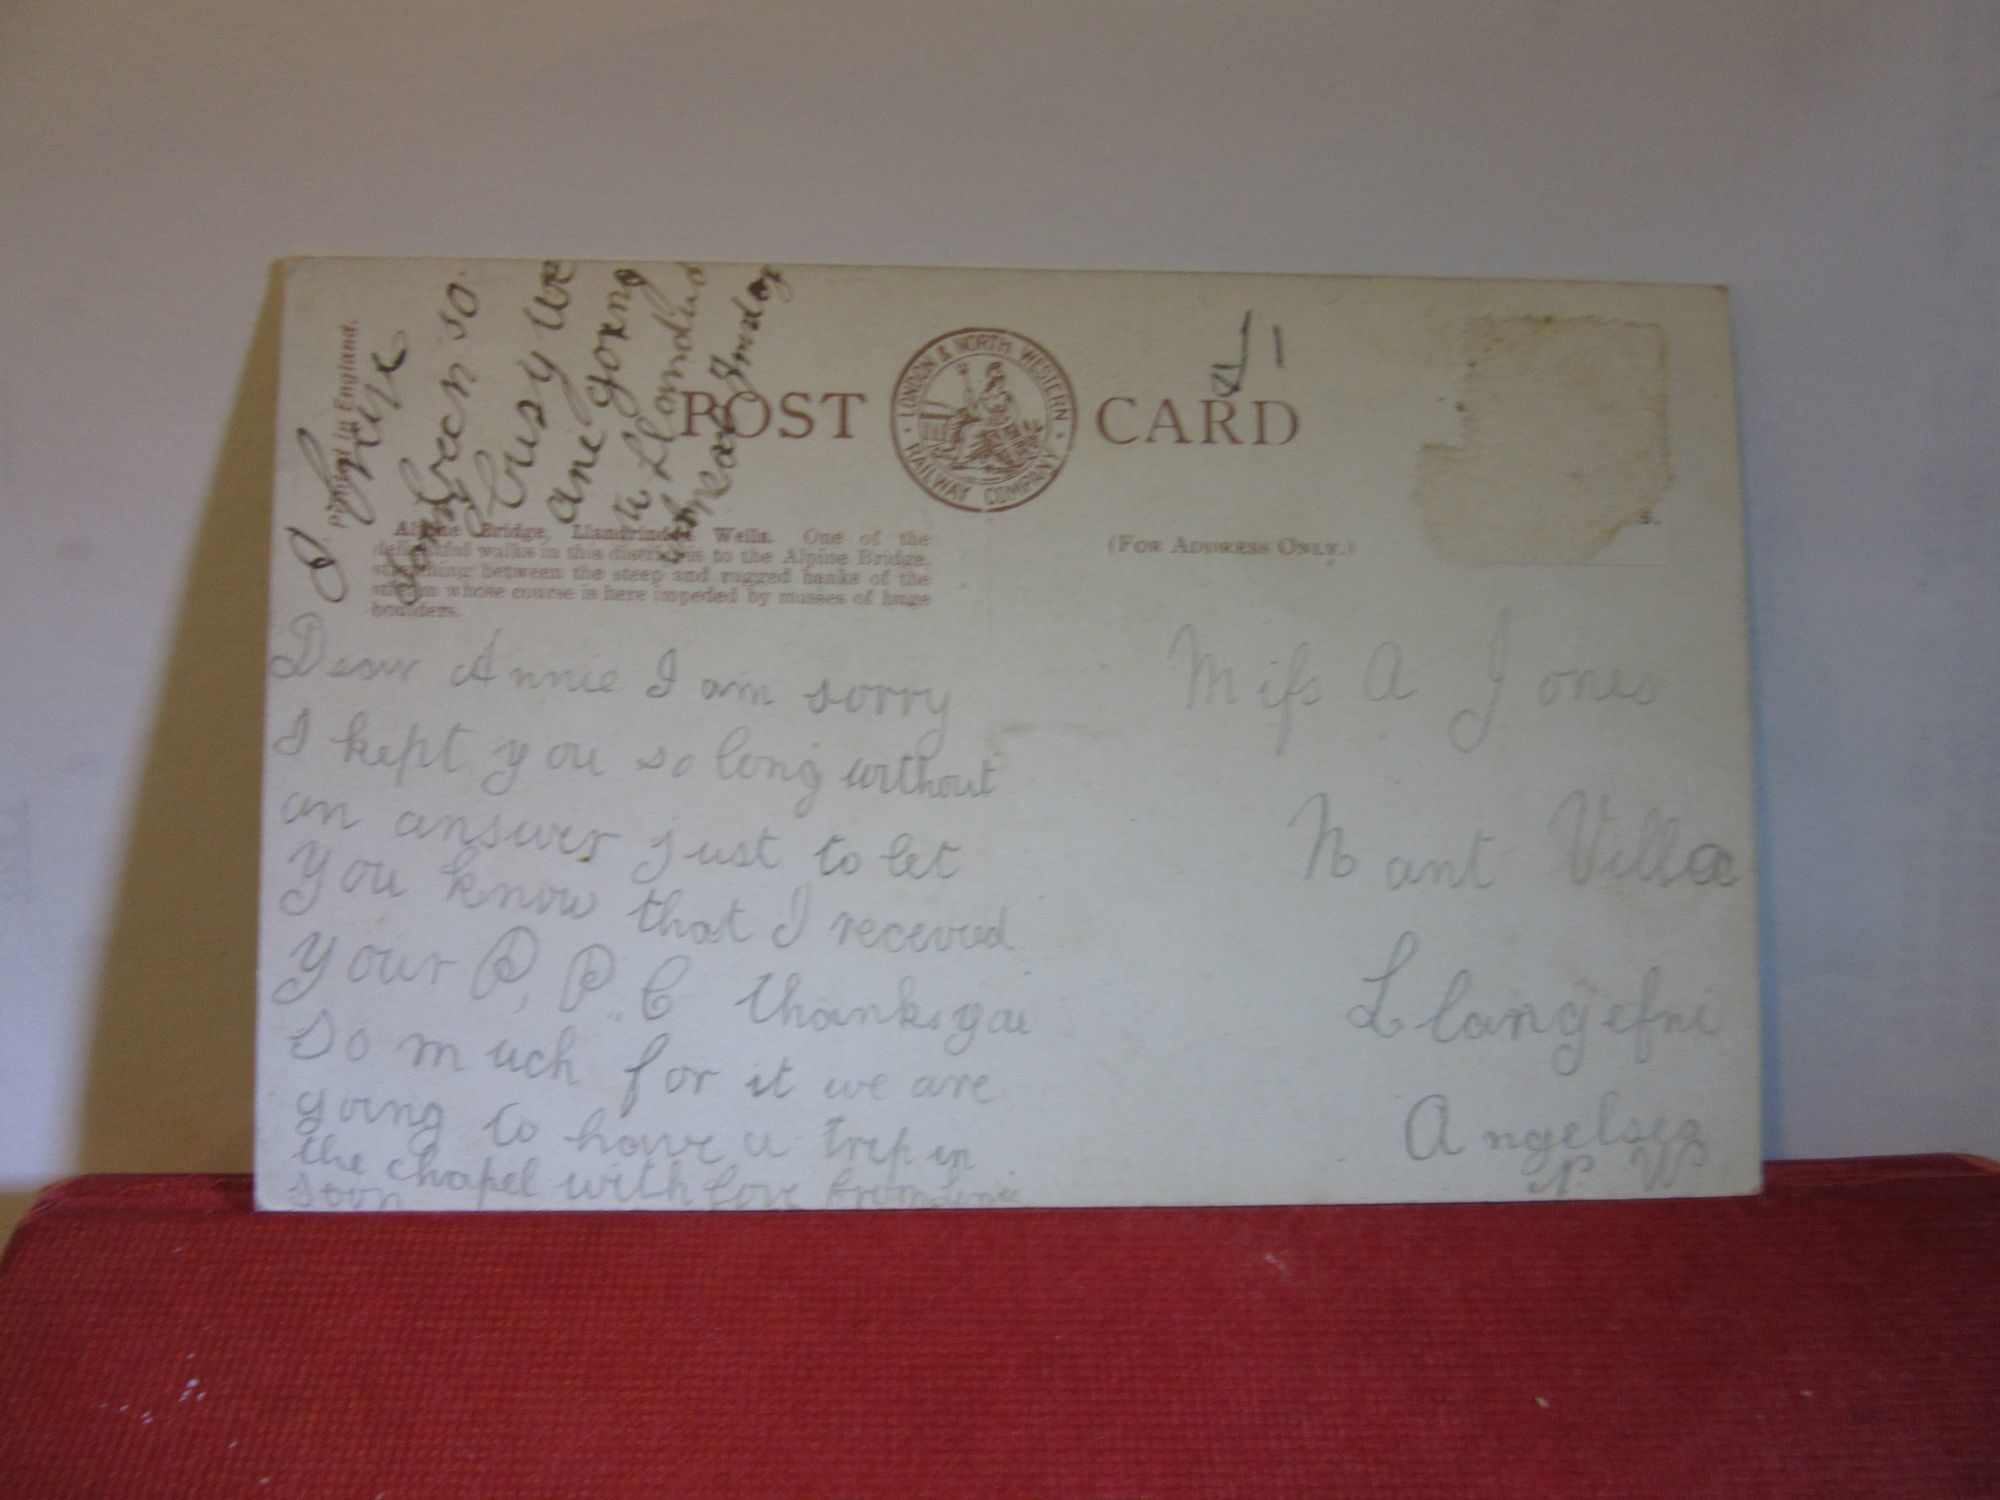 Printed in England.
I have
been so
busy we
are going
to Llandud
Monday
POST CARD
LONDON & NORTH WESTERN RAILWAY COMPANY
Alpine Bridge, Llandrindod Wells. One of the
delightful walks in this district is to the Alpine Bridge,
stretching between the steep and rugged banks of the
stream whose course is here impeded by masses of huge
boulders.
(FOR ADDRESS ONLY.)
S.
Dear Annie I am sorry
I kept you so long without
an answer just to let
you know that I received
your P. P. C thanks you
so much for it we are
going to have a trip in
the chapel with love from
soon
Miss A Jones
Nant Villa
Llangefni
Angelsea
N W